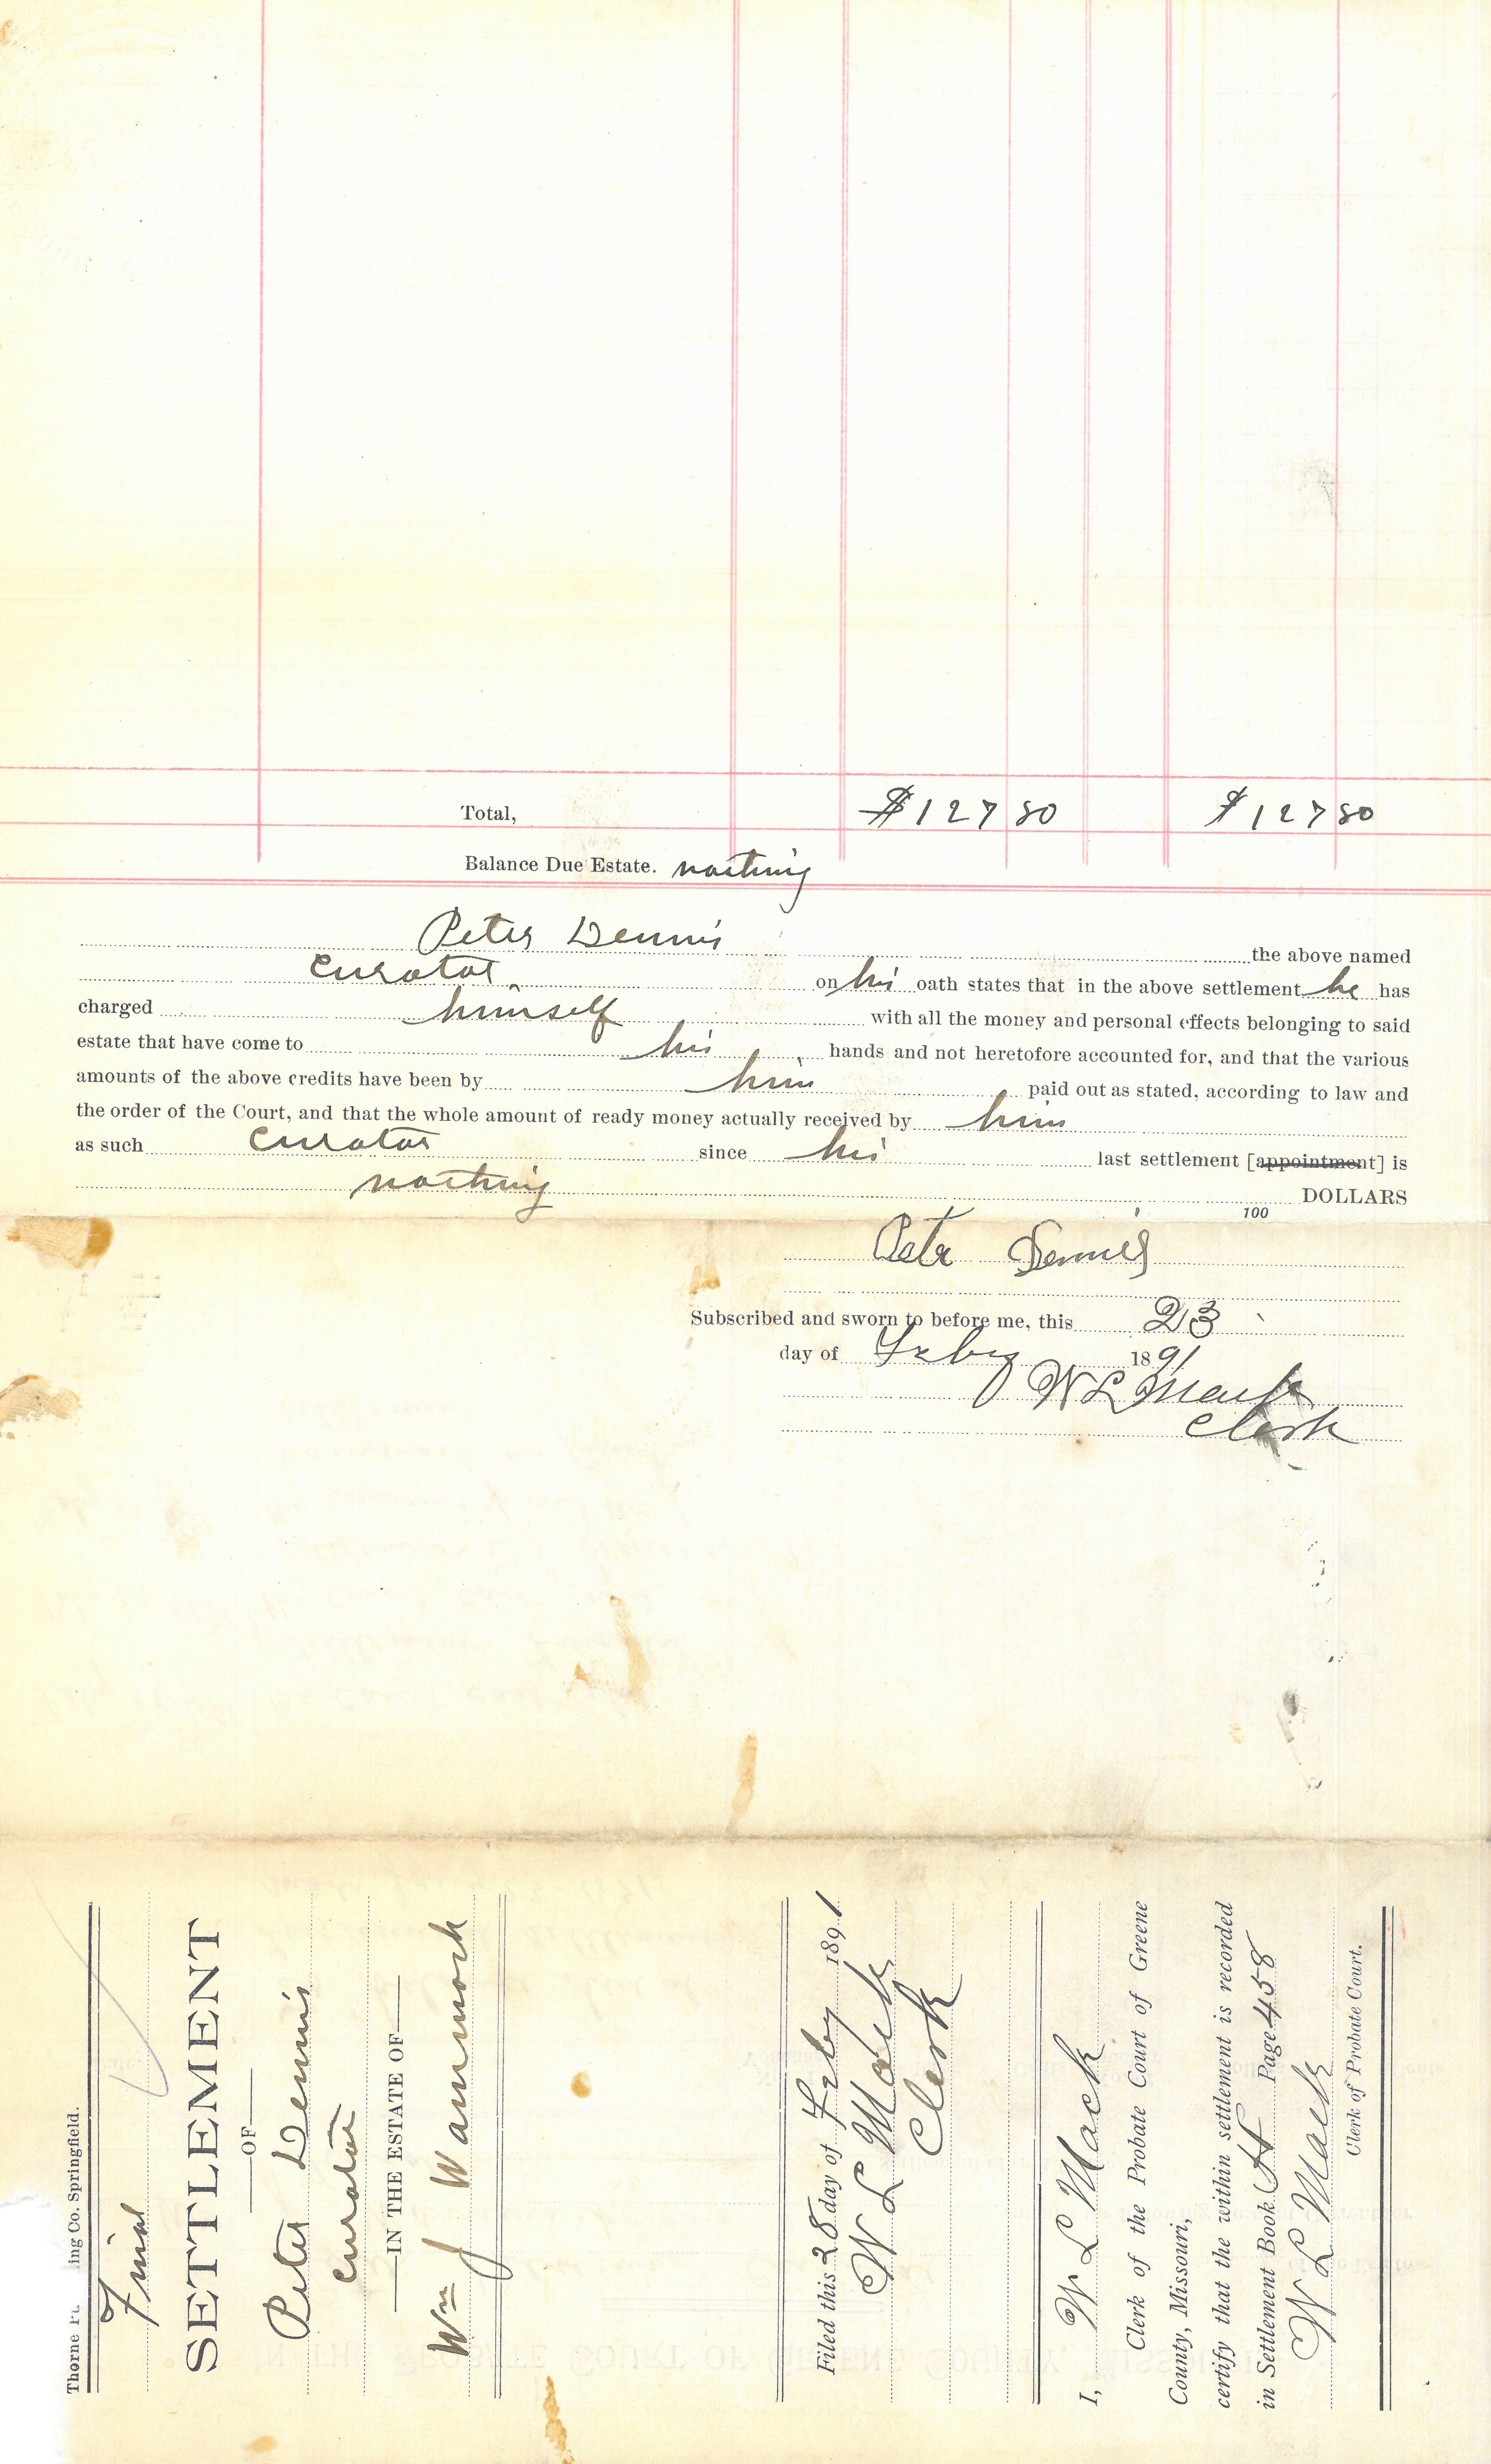 Total, $127 80 $127 80
Balance Due Estate. nothing
Peter Dennis the above named
Curator on his oath states that in the above settlement he has
charged himself with all the money and personal effects belonging to said
estate that have come to his hands and not heretofore accounted for, and that the various
amounts of the above credits have been by him paid out as stated, according to law and
the order of the Court, and that the whole amount of ready money actually received by him
as such Curator since his last settlement [appointment] is
nothing DOLLARS
100
Peter Dennis
Subscribed and sworn to before me, this 23
day of Feby 1891
W L Mack
Clerk
Thorne ing Co. Springfield.
Final
SETTLEMENT
OF
Peter Dennis
Curator
IN THE ESTATE OF
Wm J Wammock
Filed this 28 day of Feby 1891
W L Mack
Clerk
I, W L Mack
Clerk of the Probate Court of Greene
County, Missouri,
certify that the within settlement is recorded
in Settlement Book H Page 458
W L Mack
Clerk of Probate Court.